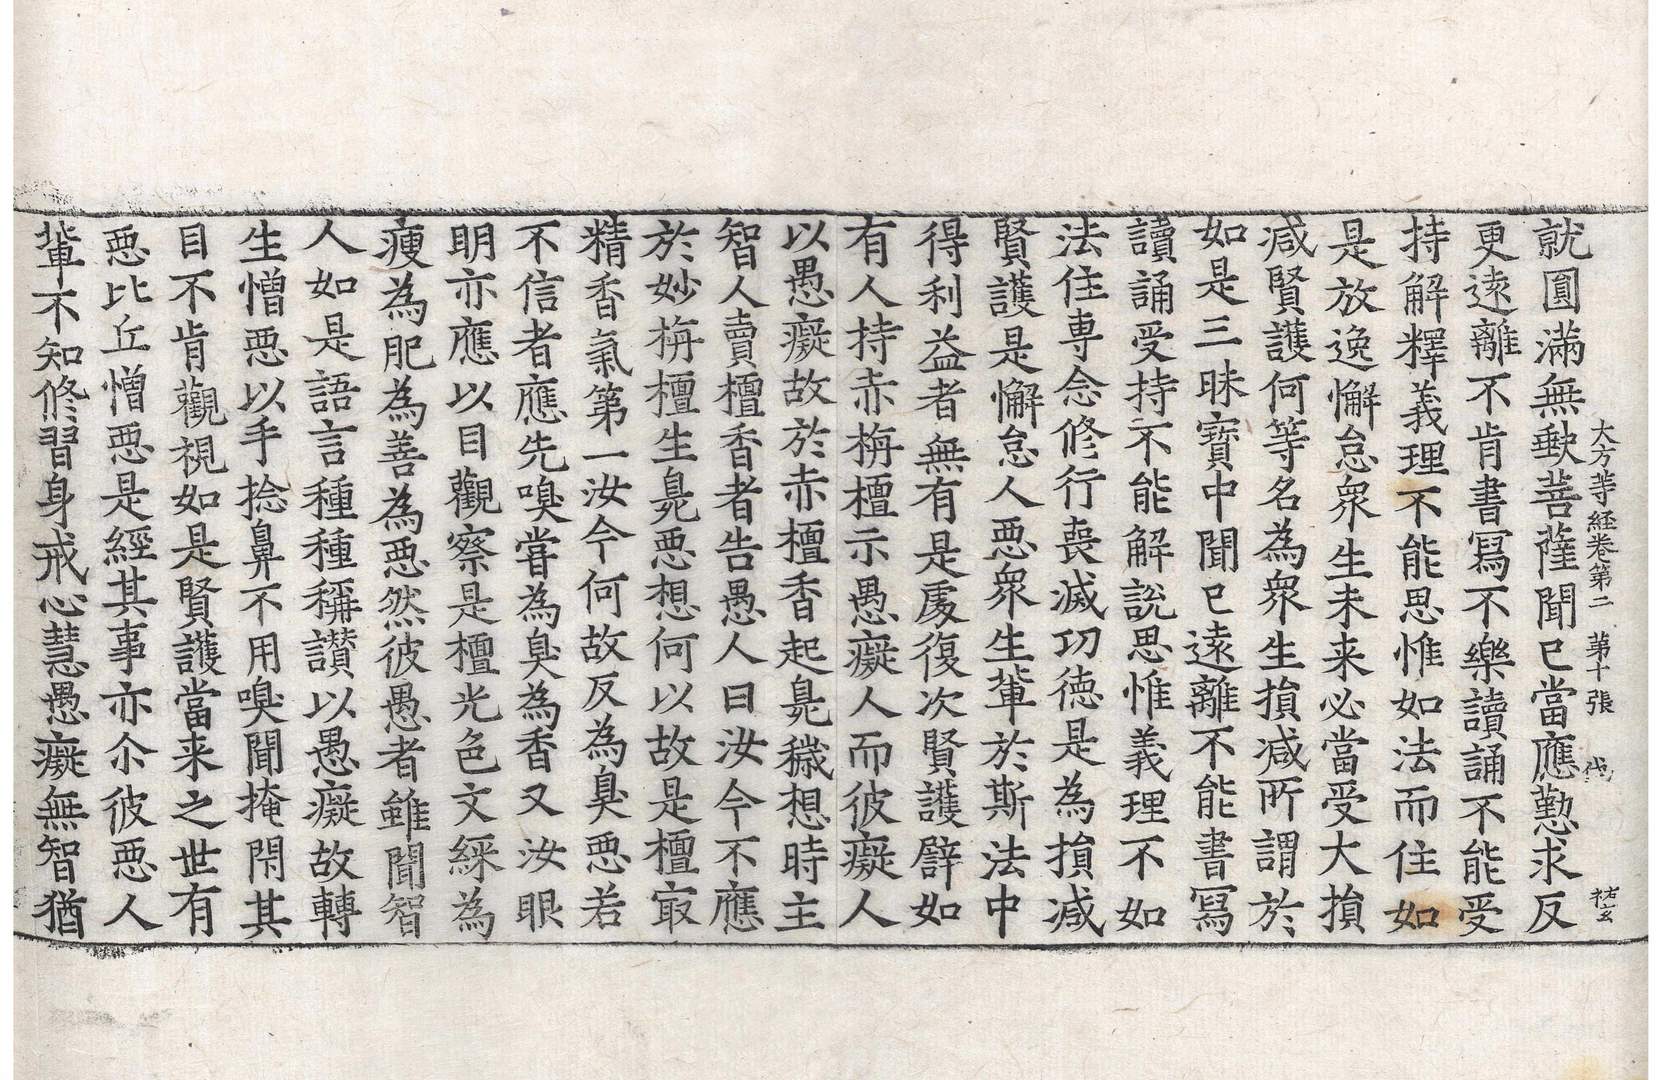 大方等経卷第二　第十張　伐　祐玄
就圓滿無缺菩薩聞已當應懃求反
更逺離不肯書寫不樂讀誦不能受
持解釋義理不能思惟如法而住如
是放逸懈怠衆生未来必當受大損
减賢護何等名為衆生損减所謂於
如是三昧寳中聞已逺離不能書寫
讀誦受持不能解説思惟義理不如
法住専念修行喪滅功徳是為損减
賢護是懈怠人惡衆生輩於斯法中
得利益者無有是處復次賢護譬如
有人持赤栴檀示愚癡人而彼癡人
以愚癡故於赤檀香起臰穢想時主
智人賣檀香者告愚人曰汝今不應
於妙栴檀生臰惡想何以故是檀㝡
精香氣第一汝今何故反為臭惡若
不信者應先嗅嘗為臭為香又汝眼
明亦應以目觀察是檀光色文綵為
瘦為肥為善為惡然彼愚者雖聞智
人如是語言種種稱讃以愚癡故轉
生憎惡以手捻鼻不用嗅聞掩閇其
目不肯觀視如是賢護當来之世有
惡比丘憎惡是經其事亦尒彼惡人
輩不知修習身戒心慧愚癡無智猶